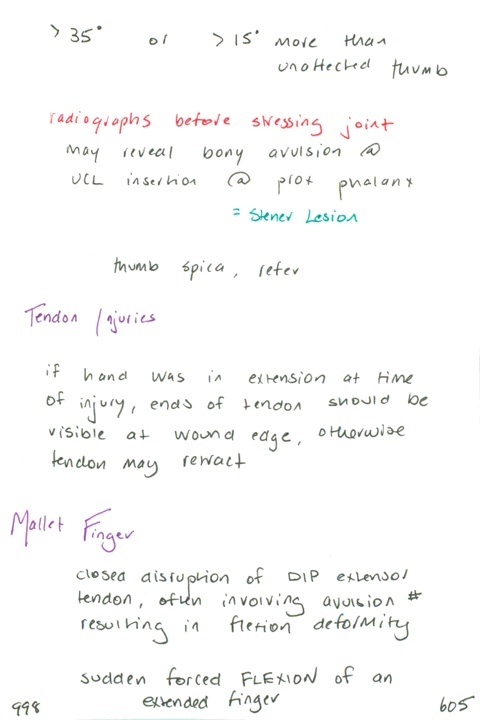 > 35° or > 15° more than
unaffected thumb
radiographs before stressing joint
may reveal bony avulsion @
UCL insertion @ prox phalanx
= Stener Lesion
thumb spica, refer
Tendon Injuries
if hand was in extension at time
of injury, ends of tendon should be
visible at wound edge, otherwise
tendon may retract
Mallet Finger
closed disruption of DIP extensor
tendon, often involving avulsion #
resulting in flexion deformity
sudden forced FLEXION of an
extended finger
998
605